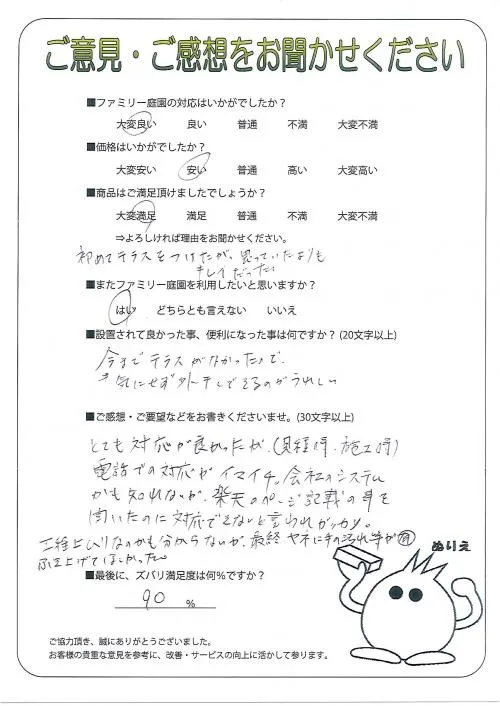 ご意見・ご感想をお聞かせください
■ファミリー庭園の対応はいかがでしたか？
大変良い 良い 普通 不満 大変不満
■価格はいかがでしたか？
大変安い 安い 普通 高い 大変高い
■商品はご満足頂けましたでしょうか？
大変満足 満足 普通 不満 大変不満
⇒よろしければ理由をお聞かせください。
初めてテラスをつけたが、思っていたよりも
キレイだった。
■またファミリー庭園を利用したいと思いますか？
はい どちらとも言えない いいえ
■設置されて良かった事、便利になった事は何ですか？(20文字以上)
今までテラスがなかったので、
気にせず外干しできるのがうれしい
■ご感想・ご要望などをお書きくださいませ。(30文字以上)
とても対応が良かったが、(見積時、施工時)
電話での対応がイマイチ。会社のシステム
かも知れないが、楽天のページ記載の事を
聞いたのに対応できないと言われガッカリ。
工程上ムリなのかも分からないが、最終ヤネに手の汚れ等が付
ふき上げてほしかった。
ぬりえ
■最後に、ズバリ満足度は何%ですか？
90 %
ご協力頂き、誠にありがとうございました。
お客様の貴重な意見を参考に、改善・サービスの向上に活かして参ります。